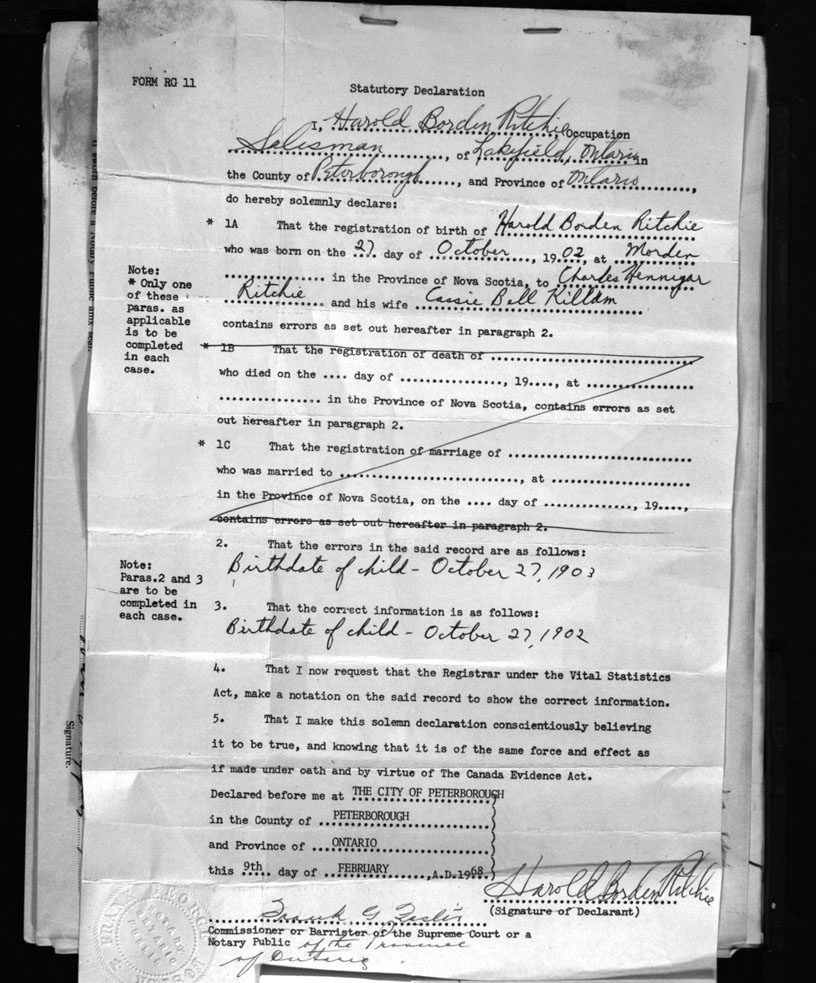 FORM RG 11
Statutory Declaration
I, Harold Borden Ritchie, Occupation
Salesman, of Lakefield, Ontario in
the County of Peterborough, and Province of Ontario,
do hereby solemnly declare:
* 1A That the registration of birth of Harold Borden Ritchie
who was born on the 27 day of October, 1902, at Morden
in the Province of Nova Scotia, to Charles Hennigar
Ritchie and his wife Cassie Bell Killam
contains errors as set out hereafter in paragraph 2.
Note:
* Only one
of these
paras. as
applicable
is to be
completed
in each
case.
* 1B That the registration of death of ..............................
who died on the .... day of ................, 19...., at ................
................ in the Province of Nova Scotia, contains errors as set
out hereafter in paragraph 2.
* 1C That the registration of marriage of ..............................
who was married to .............................., at ....................
in the Province of Nova Scotia, on the .... day of .............., 19....,
contains errors as set out hereafter in paragraph 2.
2. That the errors in the said record are as follows:
Birthdate of child - October 27, 1903
Note:
Paras.2 and 3
are to be
completed in
each case.
3. That the correct information is as follows:
Birthdate of child - October 27, 1902
4. That I now request that the Registrar under the Vital Statistics
Act, make a notation on the said record to show the correct information.
5. That I make this solemn declaration conscientiously believing
it to be true, and knowing that it is of the same force and effect as
if made under oath and by virtue of The Canada Evidence Act.
Declared before me at THE CITY OF PETERBOROUGH
in the County of PETERBOROUGH
and Province of ONTARIO
this 9th. day of FEBRUARY, A.D.1968.
Harold Borden Ritchie
(Signature of Declarant)
Frank G.
Commissioner or Barrister of the Supreme Court or a
Notary Public of the Province
of Ontario.
Signature.